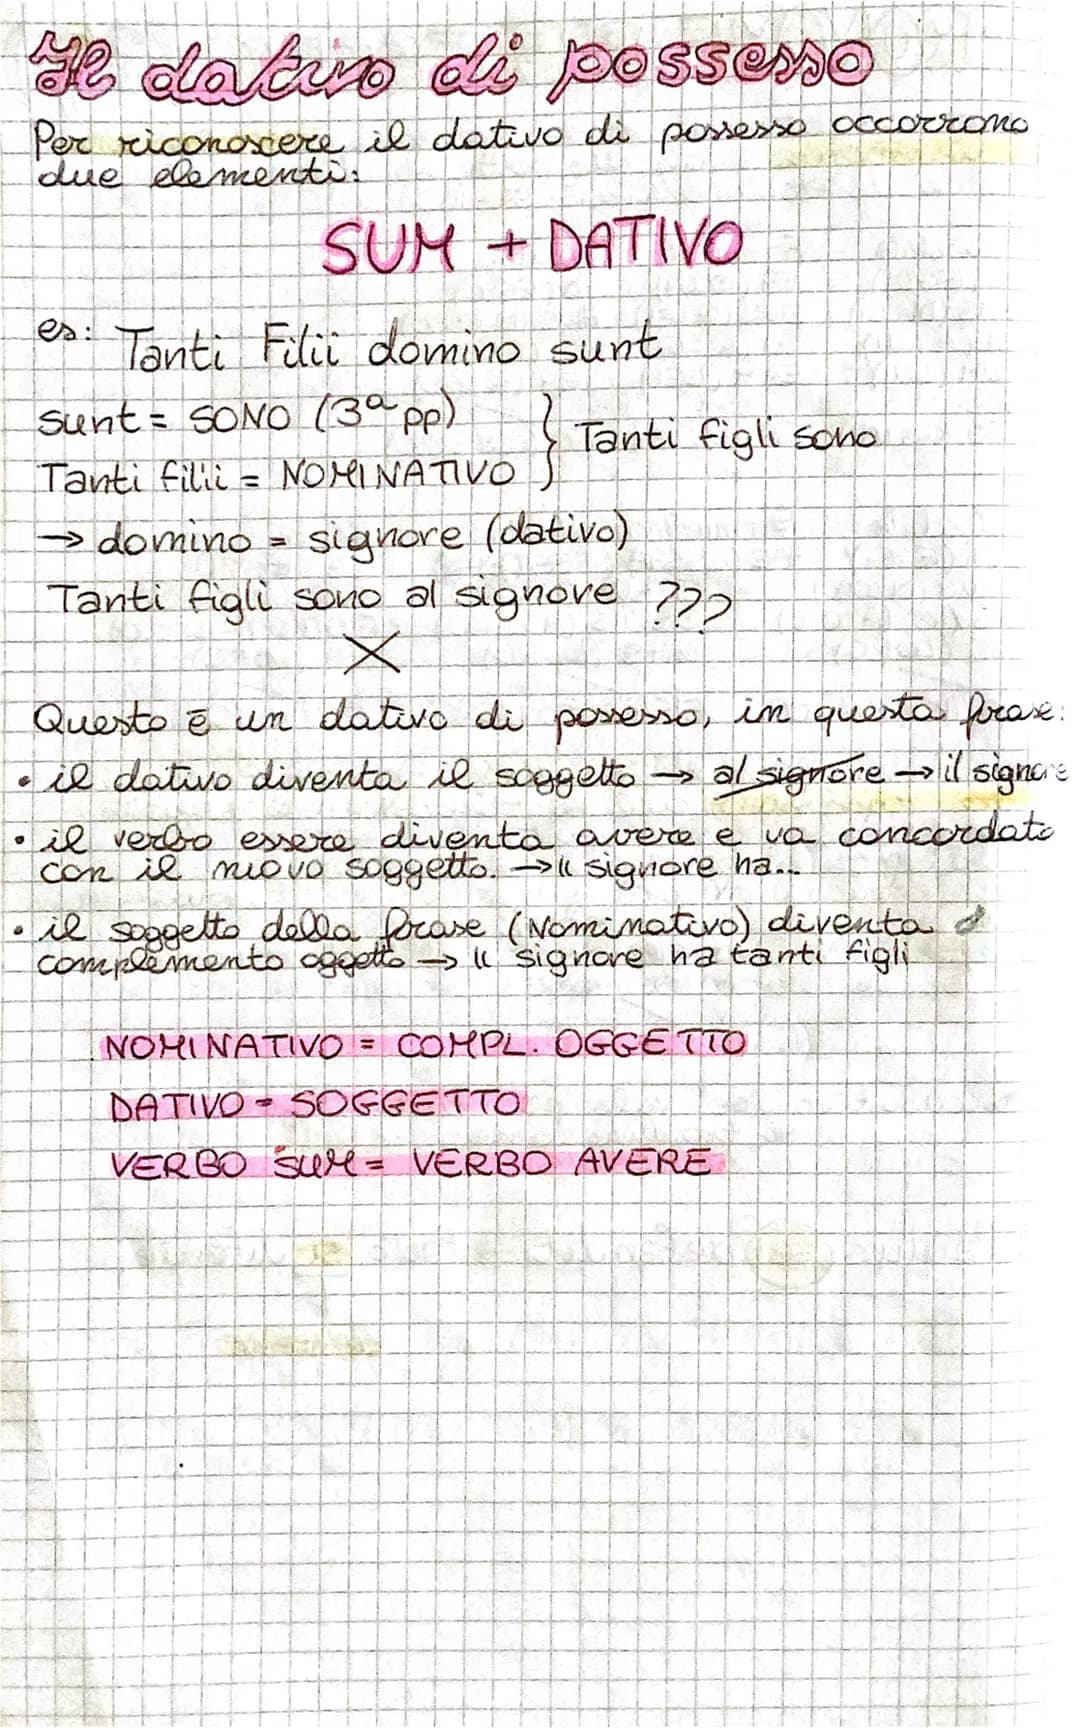 Il dativo di possesso
Per riconoscere il dativo di possesso occorrono
due elementi:
SUM + DATIVO
es: Tanti Filii domino sunt
sunt = SONO (3ª pp)
Tanti filii = NOMINATIVO } Tanti figli sono
→ domino = signore (dativo)
Tanti figli sono al signore ???
X
Questo è un dativo di possesso, in questa frase:
• il dativo diventa il soggetto → al signore → il signore
• il verbo essere diventa avere e va concordato
con il nuovo soggetto. → Il signore ha...
• il soggetto della frase (Nominativo) diventa
complemento oggetto → Il signore ha tanti figli
NOMINATIVO = COMPL. OGGETTO
DATIVO = SOGGETTO
VERBO SUM = VERBO AVERE